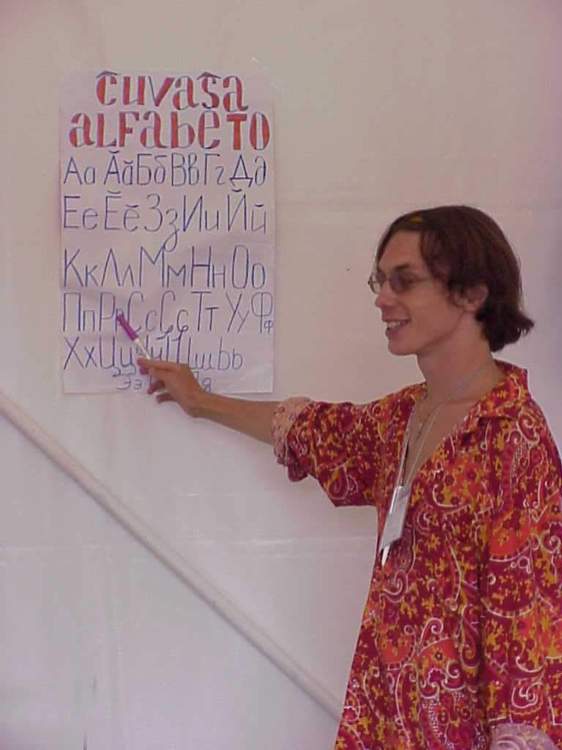 ĉuvaŝa
alfabeto
Аа Ӑӑ Бб Вв Гг Дд
Ее Ӗӗ Зз Ии Йй
Кк Лл Мм Нн Оо
Пп Рр Сс Ҫҫ Тт Уу Фф
Хх Цц Чч Шш Ьь
Ээ Яя